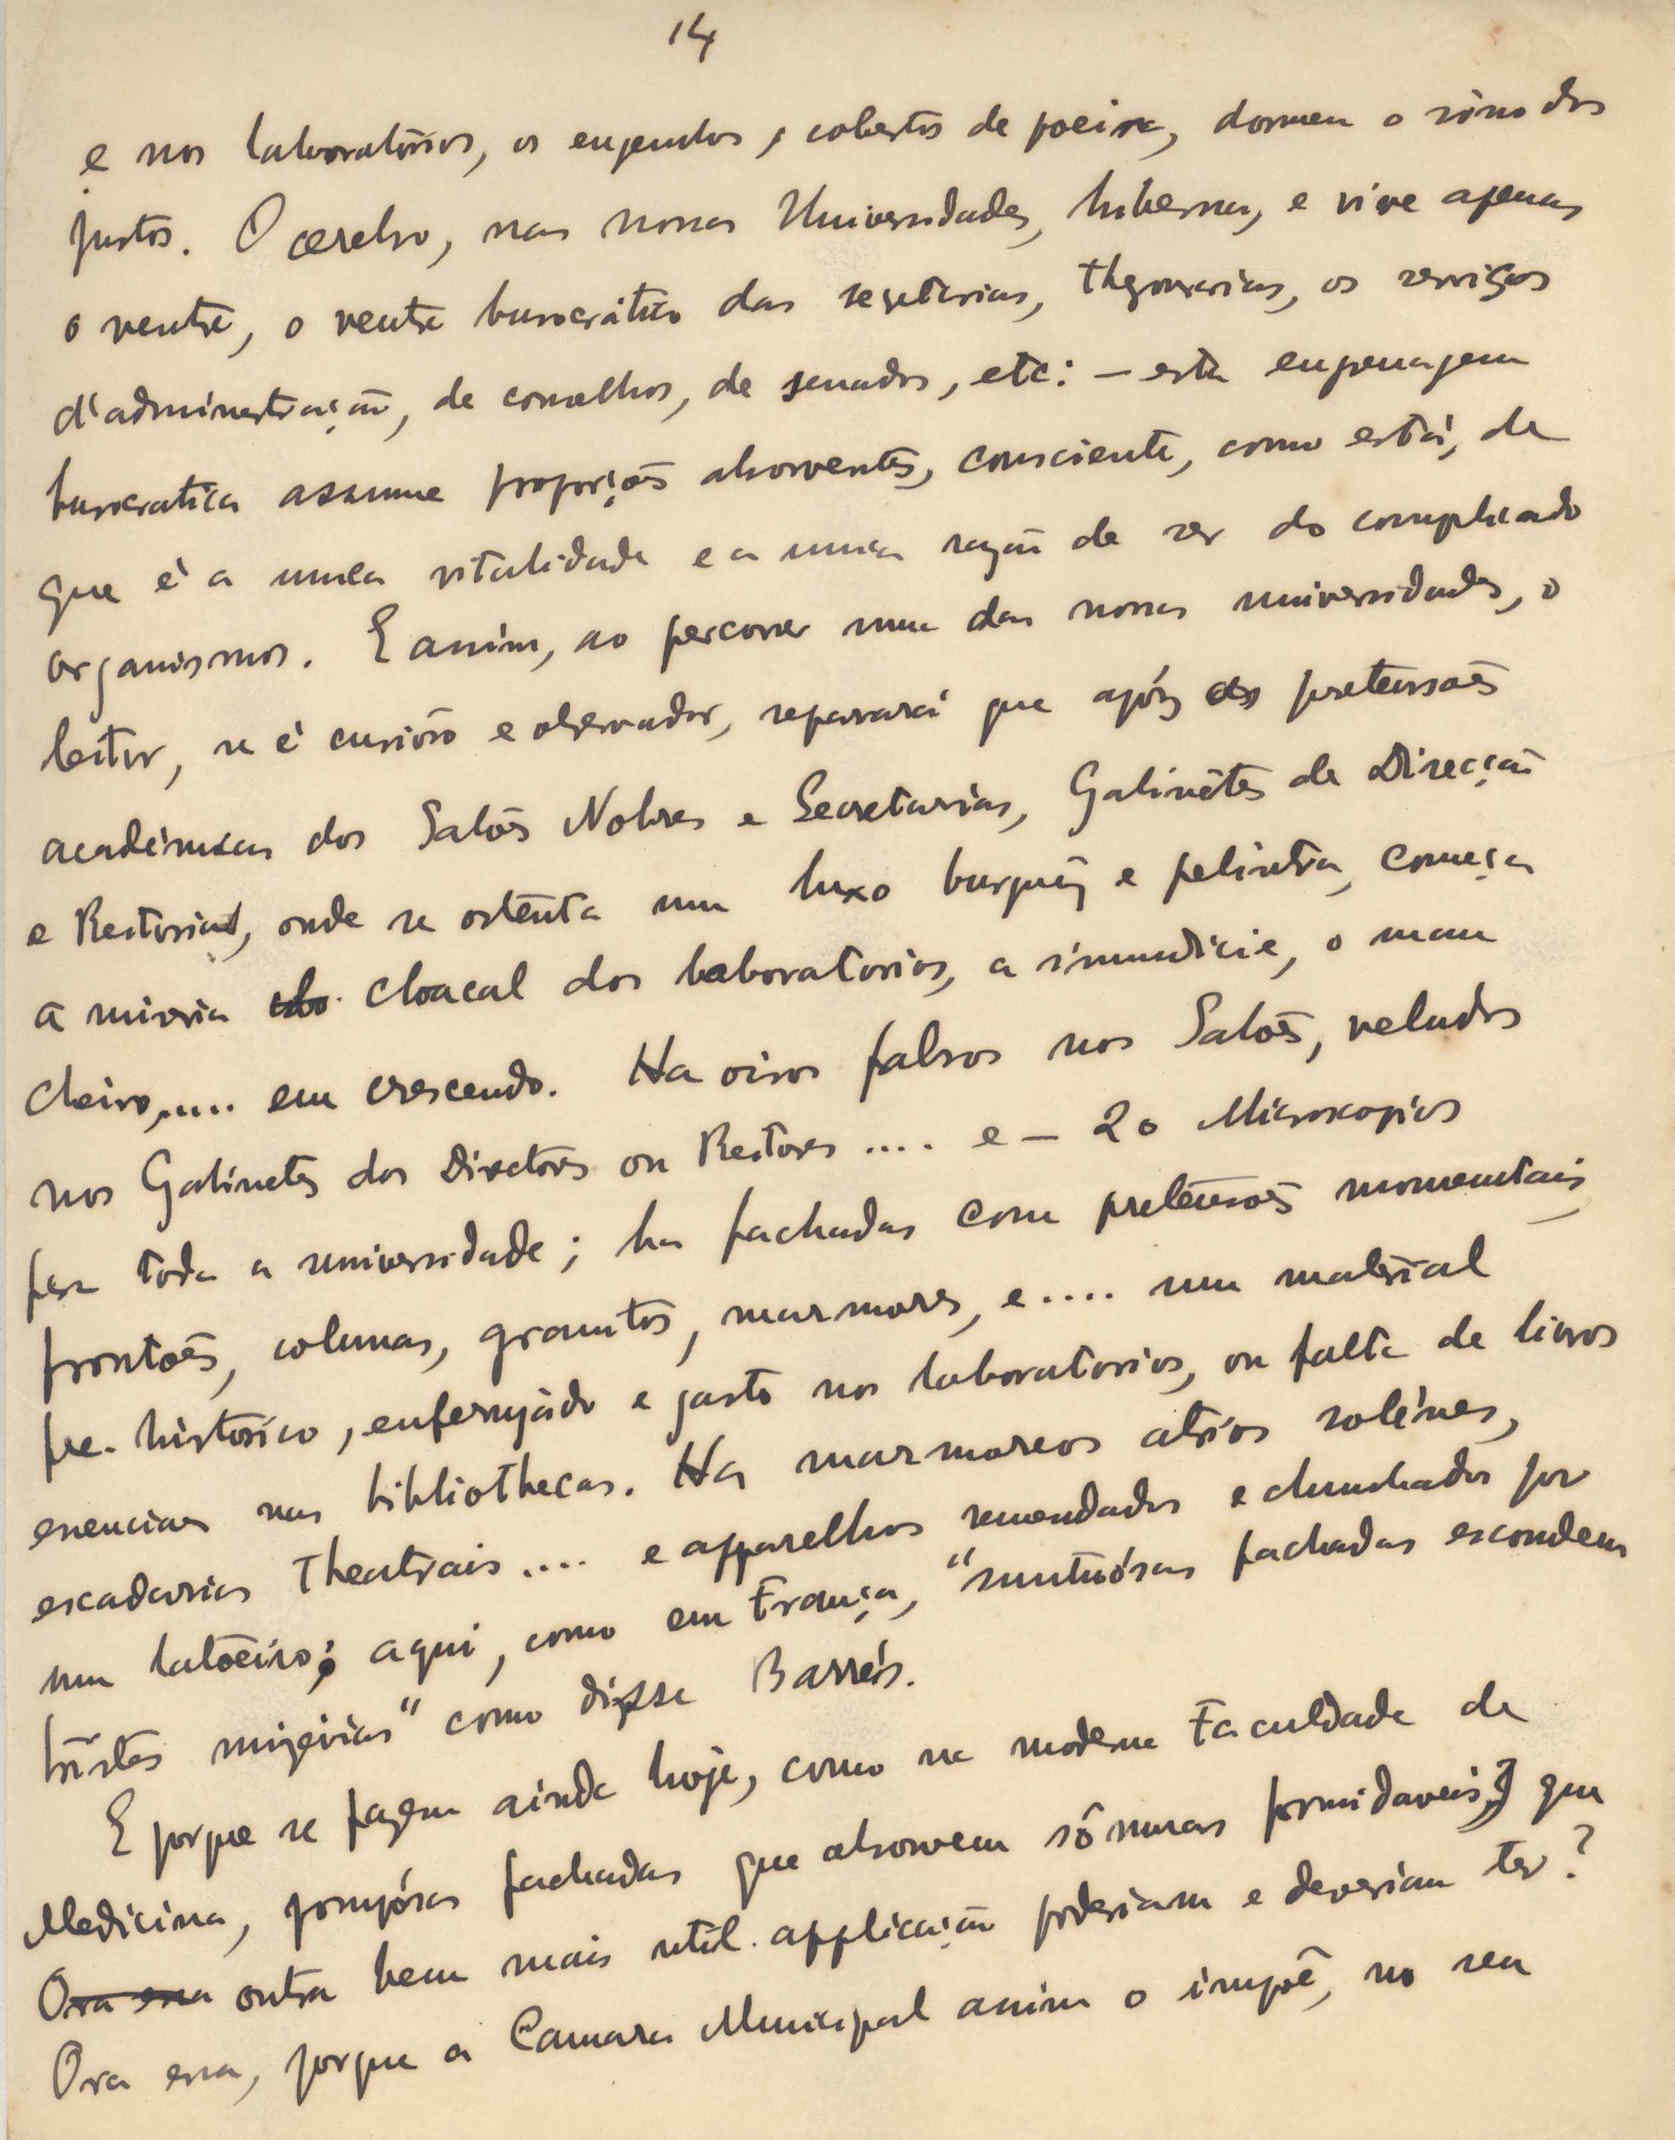 14
e nos laboratórios, os engenhos, cobertos de poeira, dormem o sôno dos
justos. O cerebro, nas nossas Universidades, hiberna, e vive apenas
o ventre, o ventre burocrático das secretarias, thezourarias, os serviços
d'administração, de conselhos, de senados, etc: — esta engrenagem
burocratica assume proporções absorventes, consciente, como está, de
que é a unica vitalidade e a unica razão de ser do complicado
organismos. E assim, ao percorrer uma das nossas universidades, o
leitor, se é curiôso e observador, reparará que após as pretensões
académicas dos Salões Nobres e Secretarias, Gabinêtes de Direcção
e Reitorias, onde se ostenta um luxo burguêz e pelintra, começa
a miseria cloacal dos laboratorios, a imundicie, o mau
cheiro,.... em crescendo. Ha oiros falsos nos Salões, veludos
nos Gabinetes dos Directores ou Reitores .... e — 20 Microscopios
para toda a universidade; ha fachadas com pretensões monumentais,
frontões, colunas, granitos, marmores, e .... um material
pre-historico, enferrujádo e gasto nos laboratorios, ou falta de livros
essenciaes nas bibliothecas. Ha marmoreos atrios solénes,
escadarias theatrais .... e apparelhos remendados e chumbados por
um latoeiro; aqui, como em França, "suntuósas fachadas escondem
tristes mizérias" como disse Barrés.
E porque se fazem ainda hoje, como na moderna Faculdade de
Medicina, pompósas fachadas que absorvem sômmas formidaveis, que
Ora essa outra bem mais util applicação poderiam e deveriam ter?
Ora essa, porque a Camara Municipal assim o impõe, no seu